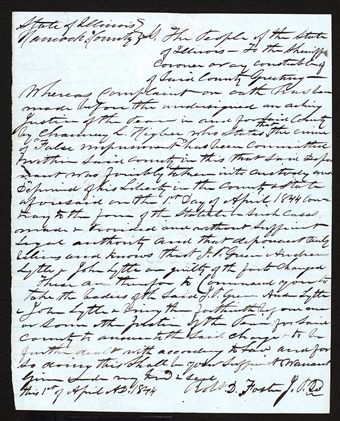 State of Illinois
Hancock County } SS The People of the State
of Illinois - To the Sheriff
Coroner or any constable
of Said County Greeting -
Whereas Complaint on oath has been
made before the undersigned an acting
Justice of the in and for the Said County
by Chauncey L. Higbee who States the crime
of "False imprisonment" has been committed
within said county in this that said depo
nent was forcibly taken into custody and
deprived of his liberty in the County & State
aforesaid on the 1st day of April 1844 con
trary to the form of the Statute in such cases
made & provided and without Sufficient
Legal authority and that deponent verily
believes and knows that J. P. Green Andrew
Lytle & John Lytle are guilty of the fact charged
These are therefore to Command you to
take the bodies of the Said J. P. Green Andw Lytle
& John Lytle & bring them forthwith before me
or Some other Justice of the Peace for Said
County to answer to the Said charge & to be
further dealt with according to Law and for
so doing this shall be your Sufficient Warrant
Given under my hand & seal
this 1st of April A.D. 1844
Robt. D. Foster J. P.